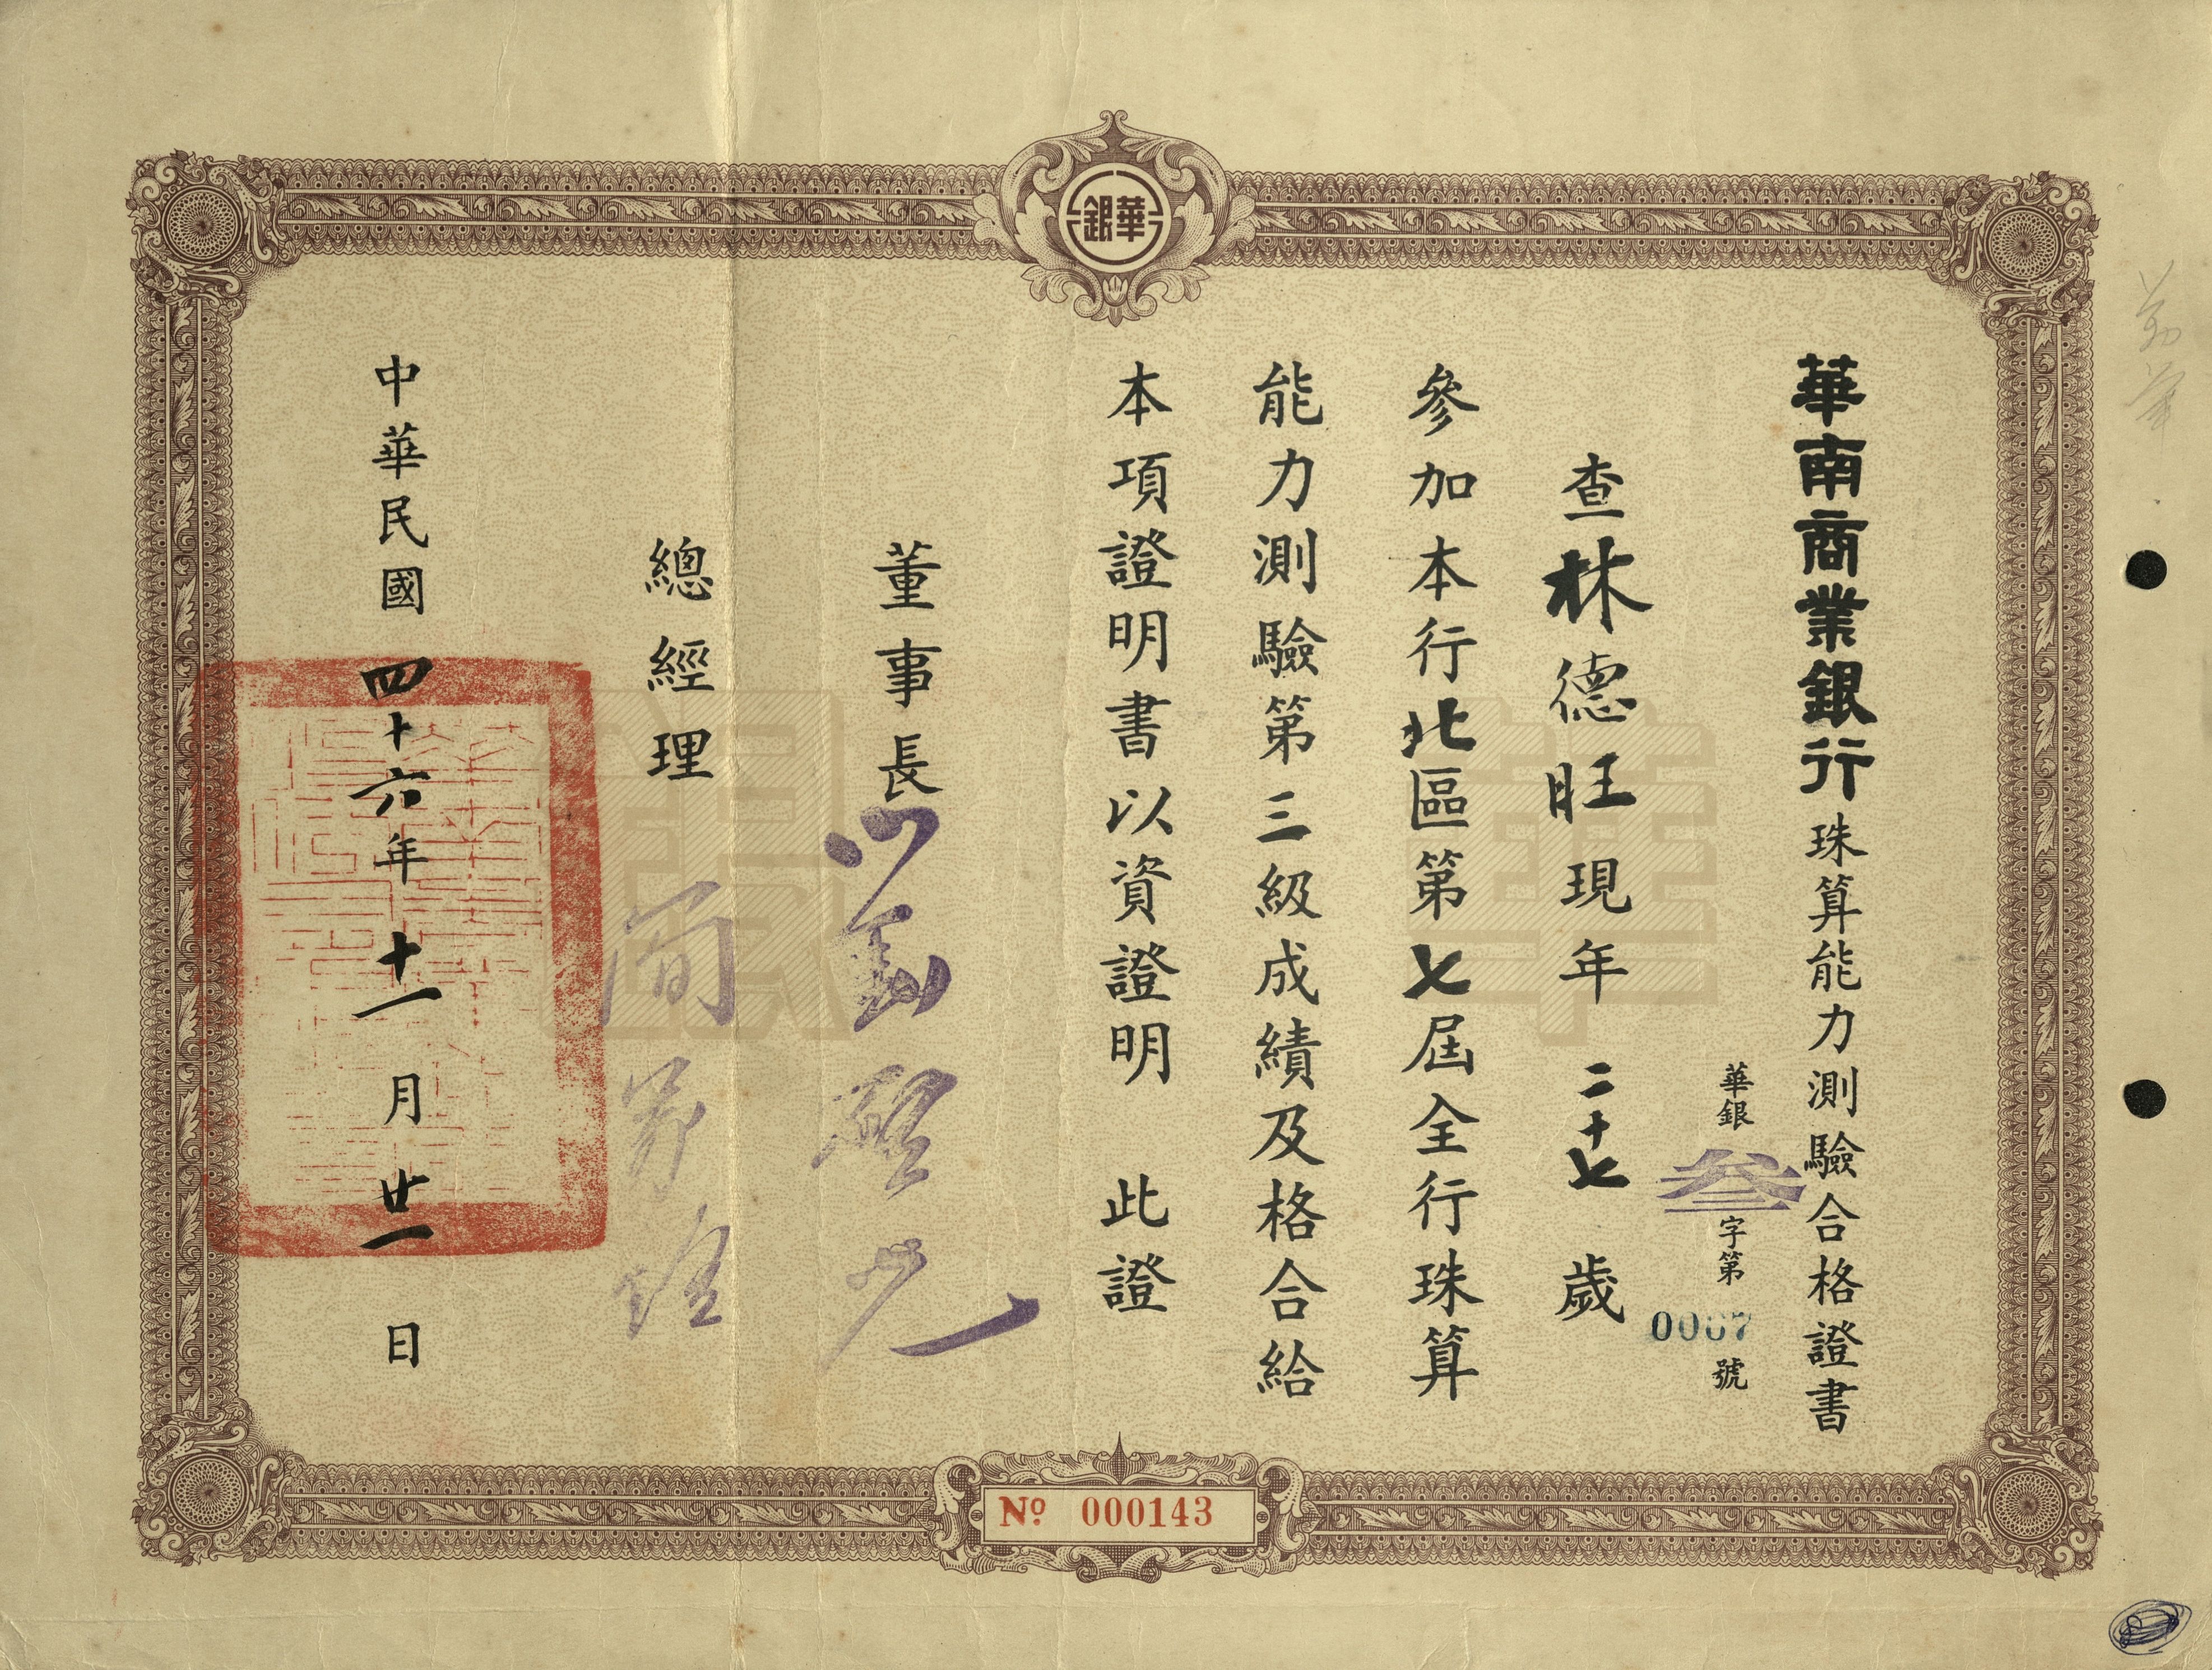 華銀
華南商業銀行珠算能力測驗合格證書
華銀叁字第0067號
查林德旺現年二十七歲
參加本行北區第七屆全行珠算
能力測驗第三級成績及格合給
本項證明書以資證明 此證
董事長
總經理
中華民國四十六年十一月廿一日
華銀
No. 000143